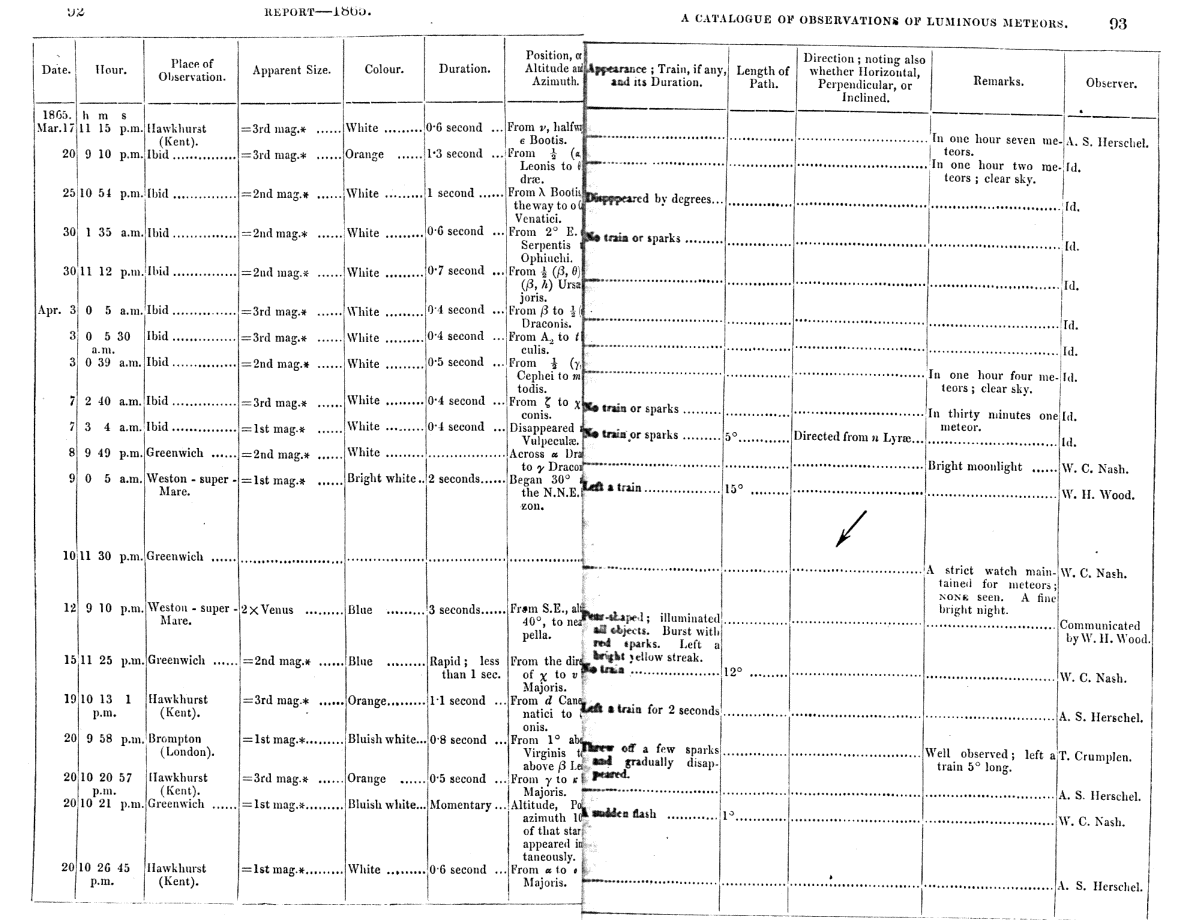 92 REPORT—1865.
A CATALOGUE OF OBSERVATIONS OF LUMINOUS METEORS. 93
Date. Hour. Place of Observation. Apparent Size. Colour. Duration. Position, Altitude Azimuth. Appearance; Train, if any, and its Duration. Length of Path. Direction; noting also whether Horizontal, Perpendicular, or Inclined. Remarks. Observer.
1865. h m s
Mar.17 11 15 p.m. Hawkhurst (Kent). =3rd mag.* ...... White ......... 0·6 second ... From ν, ε Bootis. In one hour seven meteors. A. S. Herschel.
20 9 10 p.m. Ibid ............. =3rd mag.* ...... Orange ...... 1·3 second ... From ½ Leonis to dræ. In one hour two meteors; clear sky. Id.
25 10 54 p.m. Ibid ............. =2nd mag.* ...... White ......... 1 second ...... From λ Bootis the way to Venatici. Disappeared by degrees... Id.
30 1 35 a.m. Ibid ............. =2nd mag.* ...... White ......... 0·6 second ... From 2° E. Serpentis Ophiuchi. No train or sparks ......... Id.
30 11 12 p.m. Ibid ............. =2nd mag.* ...... White ......... 0·7 second ... From ½ (β, θ) (β, h) Ursæ joris. Id.
Apr. 3 0 5 a.m. Ibid ............. =3rd mag.* ...... White ......... 0·4 second ... From β to ½ Draconis. Id.
3 0 5 30 a.m. Ibid ............. =3rd mag.* ...... White ......... 0·4 second ... From A₂ to culis. Id.
3 0 39 a.m. Ibid ............. =2nd mag.* ...... White ......... 0·5 second ... From ½ (γ, Cephei to m todis. In one hour four meteors; clear sky. Id.
7 2 40 a.m. Ibid ............. =3rd mag.* ...... White ......... 0·4 second ... From ζ to χ conis. No train or sparks ......... In thirty minutes one meteor. Id.
7 3 4 a.m. Ibid ............. =1st mag.* ...... White ......... 0·4 second ... Disappeared Vulpeculæ. No train or sparks ......... 5°........... Directed from n Lyræ... Id.
8 9 49 p.m. Greenwich ...... =2nd mag.* ...... White ......... Across α Dra to γ Draco Bright moonlight ...... W. C. Nash.
9 0 5 a.m. Weston - super - Mare. =1st mag.* ...... Bright white.. 2 seconds...... Began 30° the N.N.E. zon. Left a train ............... 15° ......... W. H. Wood.
10 11 30 p.m. Greenwich ...... A strict watch maintained for meteors; NONE seen. A fine bright night. W. C. Nash.
12 9 10 p.m. Weston - super - Mare. 2×Venus ...... Blue ......... 3 seconds...... From S.E., 40°, to pella. Pear-shaped; illuminated all objects. Burst with red sparks. Left a bright yellow streak. Communicated by W. H. Wood.
15 11 25 p.m. Greenwich ...... =2nd mag.* ...... Blue ......... Rapid; less than 1 sec. From the of χ to υ Majoris. No train .................. 12° ......... W. C. Nash.
19 10 13 1 p.m. Hawkhurst (Kent). =3rd mag.* ...... Orange......... 1·1 second ... From d Cane natici to onis. Left a train for 2 seconds A. S. Herschel.
20 9 58 p.m. Brompton (London). =1st mag.*........ Bluish white... 0·8 second ... From 1° Virginis above β Le Threw off a few sparks and gradually disappeared. Well observed; left a train 5° long. T. Crumplen.
20 10 20 57 p.m. Hawkhurst (Kent). =3rd mag.* ...... Orange ...... 0·5 second ... From γ to κ Majoris. A. S. Herschel.
20 10 21 p.m. Greenwich ...... =1st mag.*........ Bluish white... Momentary ... Altitude, azimuth 10 of that star appeared taneously. A sudden flash ......... 1°........... W. C. Nash.
20 10 26 45 p.m. Hawkhurst (Kent). =1st mag.*........ White ......... 0·6 second ... From α to Majoris. A. S. Herschel.